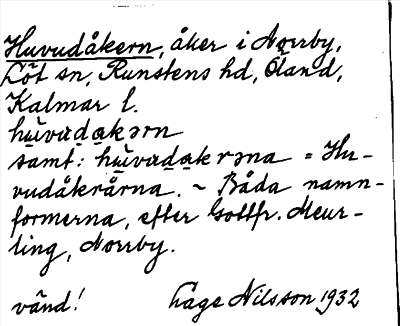 Huvudåkern, åker i Norrby,
Löt sn, Runstens hd, Öland,
Kalmar l.
hu̲vuda̲kərn
samt: hu̲vuda̲krəna = Hu-
vudåkrårna. ~ Båda namn-
formerna, efter Gottfr. Meur-
ling, Norrby.
vänd! Lage Nilsson 1932